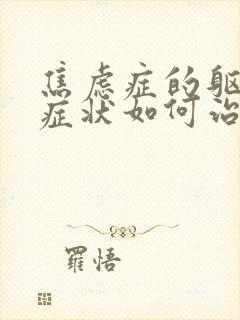 焦虑症的躯
症状如何治
羅悟